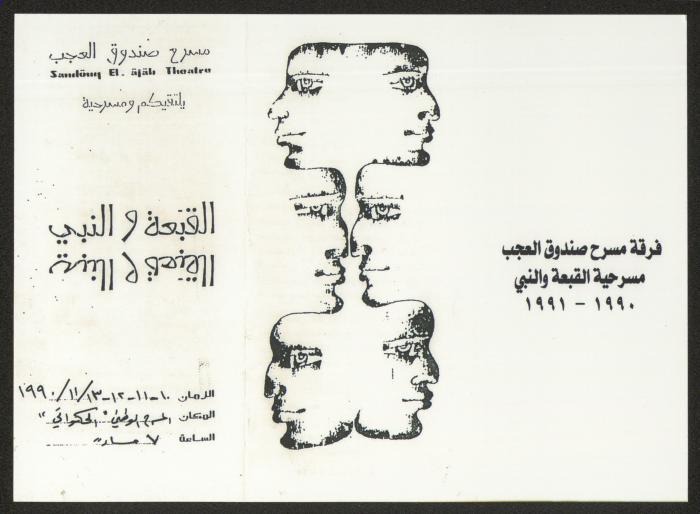 مسرح صندوق العجب
Sandouq El. ajab Theatre
يلتقيكم ومسرحية
القبعة و النبي
القبعة و النبي
الزمان ١٠-١١-١٢-١٣/١١/١٩٩٠
المكان المسرح الوطني "الحكواتي"
الساعة ٧ مساءً
فرقة مسرح صندوق العجب
مسرحية القبعة والنبي
١٩٩٠ - ١٩٩١